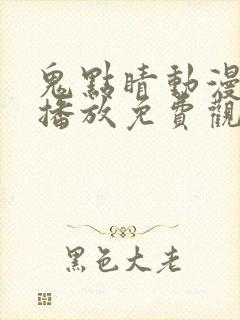 鬼點晴動漫
播放免費觀
黑色大老